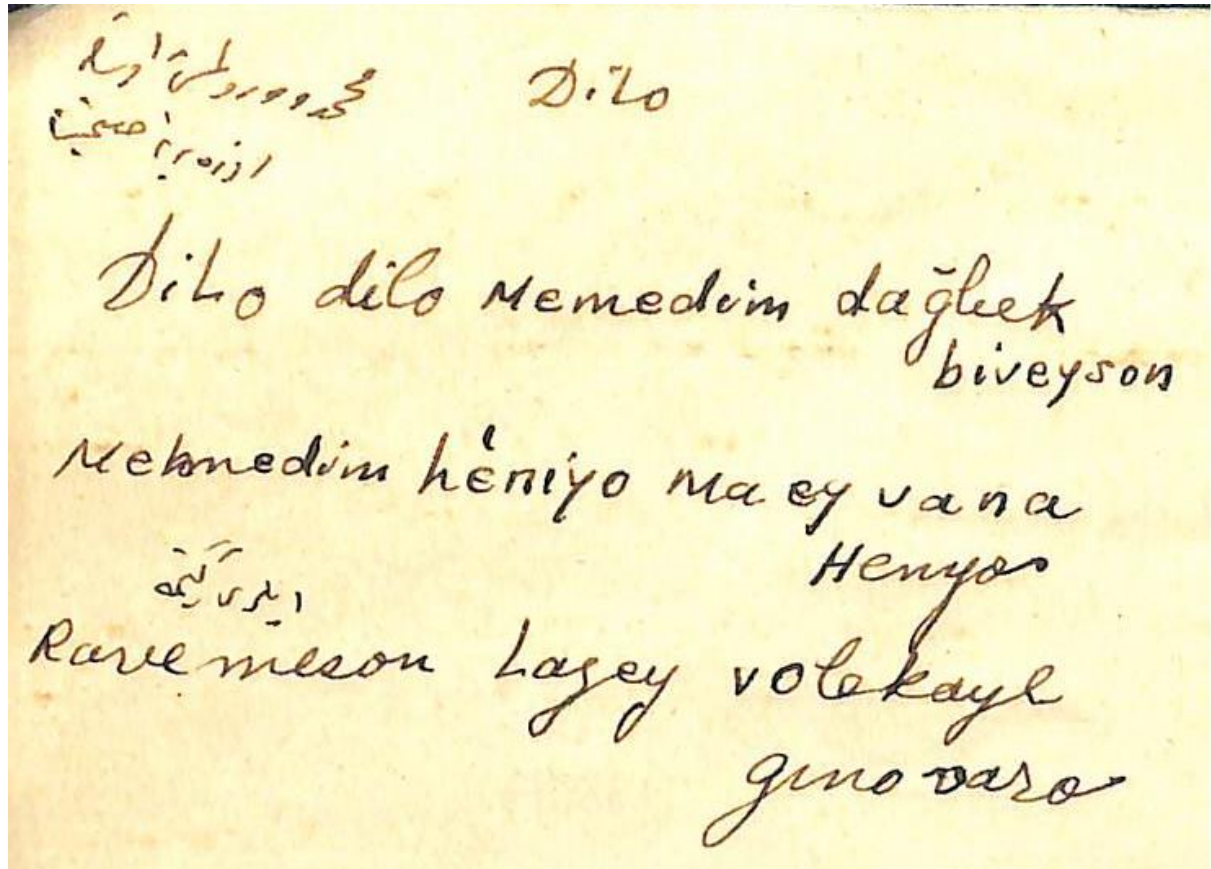 Dilo
Dilo dilo Memedim dağlıek
biveyson
Mehmedim hêniyo Ma ey vana
Henyo
Rave meson Lazey volekayl
gıno varo